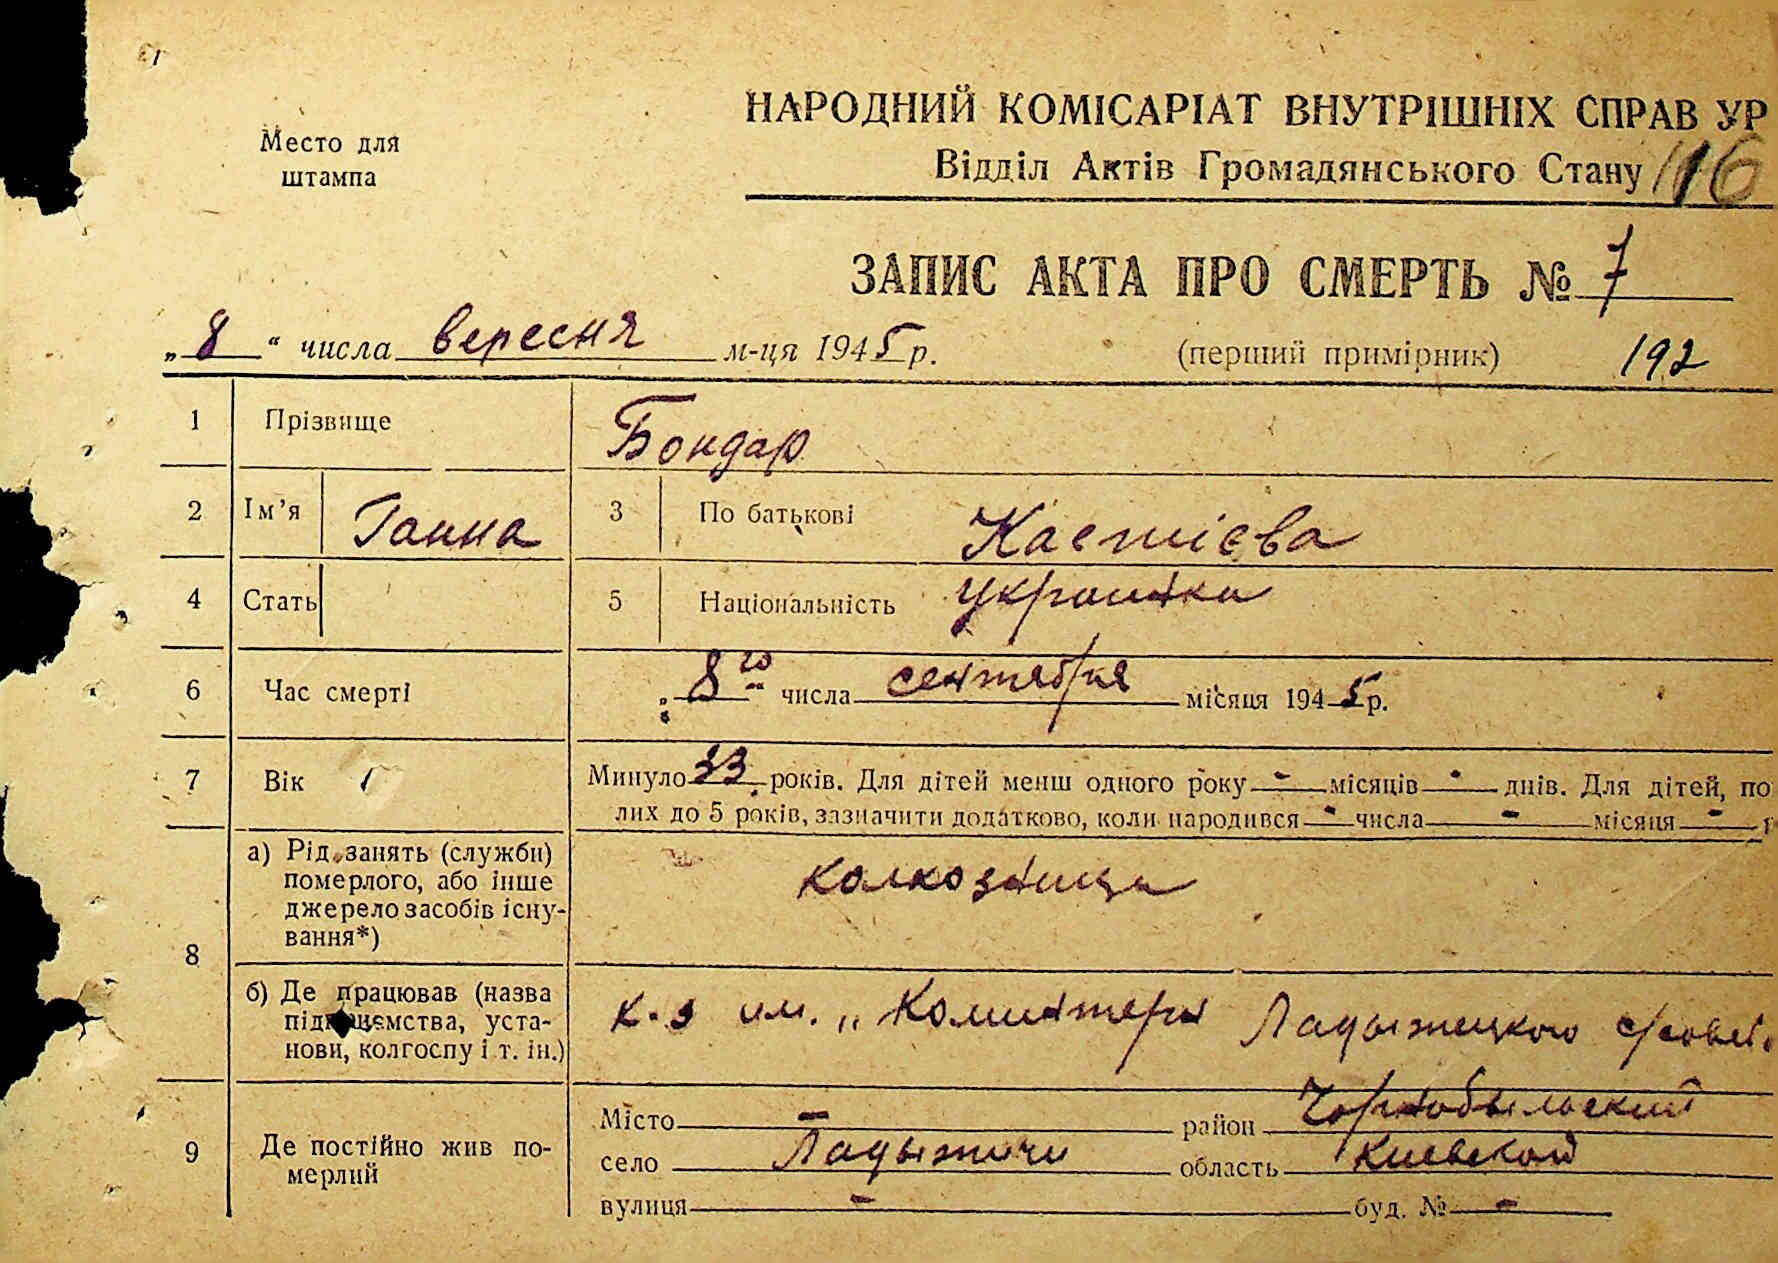 Место для
штампа
НАРОДНИЙ КОМІСАРІАТ ВНУТРІШНІХ СПРАВ УР
Відділ Актів Громадянського Стану 116
ЗАПИС АКТА ПРО СМЕРТЬ № 7
„8“ числа вересня м-ця 1945 р. (перший примірник) 192
1 Прізвище Бондар
2 Ім’я Ганна 3 По батькові
4 Стать 5 Національність Українка
6 Час смерті „8го“ числа сентября місяця 1945 р.
7 Вік Минуло 33 років. Для дітей менш одного року - місяців - днів. Для дітей, по
лих до 5 років, зазначити додатково, коли народився - числа - місяця - р
8 а) Рід занять (служби)
померлого, або інше
джерело засобів існу-
вання*) колхозница
б) Де працював (назва
підприємства, уста-
нови, колгоспу і т. ін.) к-з им. „Коминтерн Ладыжецкого с/совет.
9 Де постійно жив по-
мерлий
Місто - район Чорнобыльский
село Ладыжичи область Киевской
вулиця - буд. № -